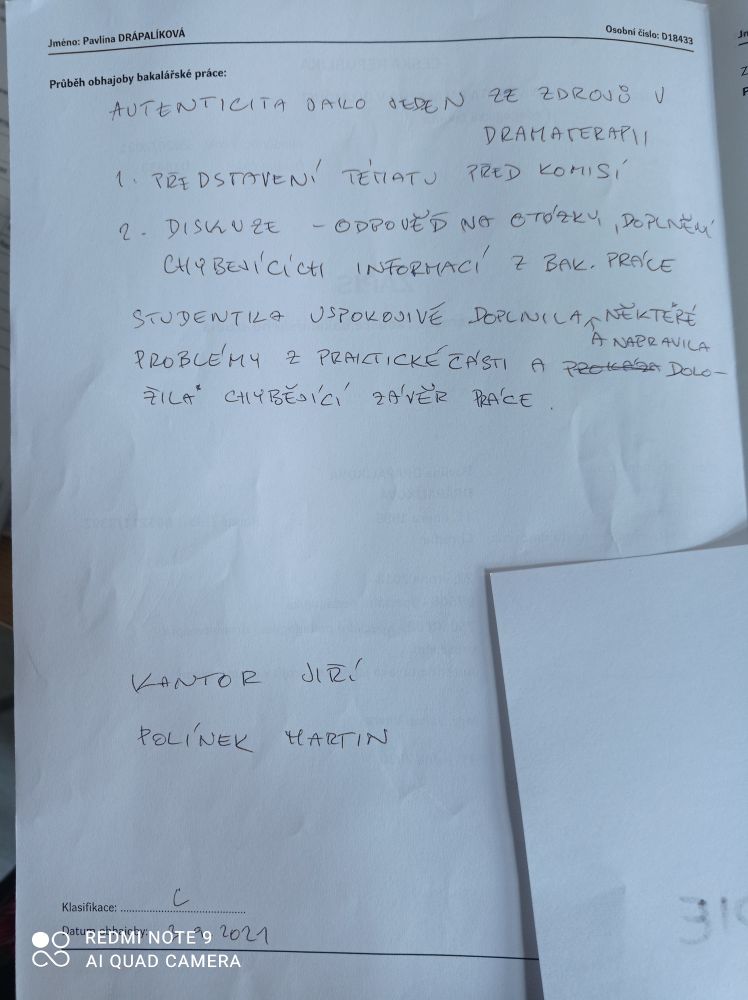 Jméno: Pavlína DRÁPALÍKOVÁ
Osobní číslo: D18433
Průběh obhajoby bakalářské práce:
AUTENTICITA JAKO JEDEN ZE ZDROJŮ V
DRAMATERAPII
1. PŘEDSTAVENÍ TÉMATU PŘED KOMISÍ
2. DISKUZE - ODPOVĚĎ NA OTÁZKY, DOPLNĚNÍ
CHYBEJÍCÍCH INFORMACÍ Z BAK. PRÁCE
STUDENTKA USPOKOJIVĚ DOPLNILA NĚKTERÉ
A NAPRAVILA
PROBLÉMY Z PRAKTICKÉ ČÁSTI A DOLO-
ŽILA CHYBĚJÍCÍ ZÁVĚR PRÁCE.
KANTOR JIŘÍ
POLÍNEK MARTIN
Klasifikace: C
Datum obhajoby: 2021
REDMI NOTE 9
AI QUAD CAMERA